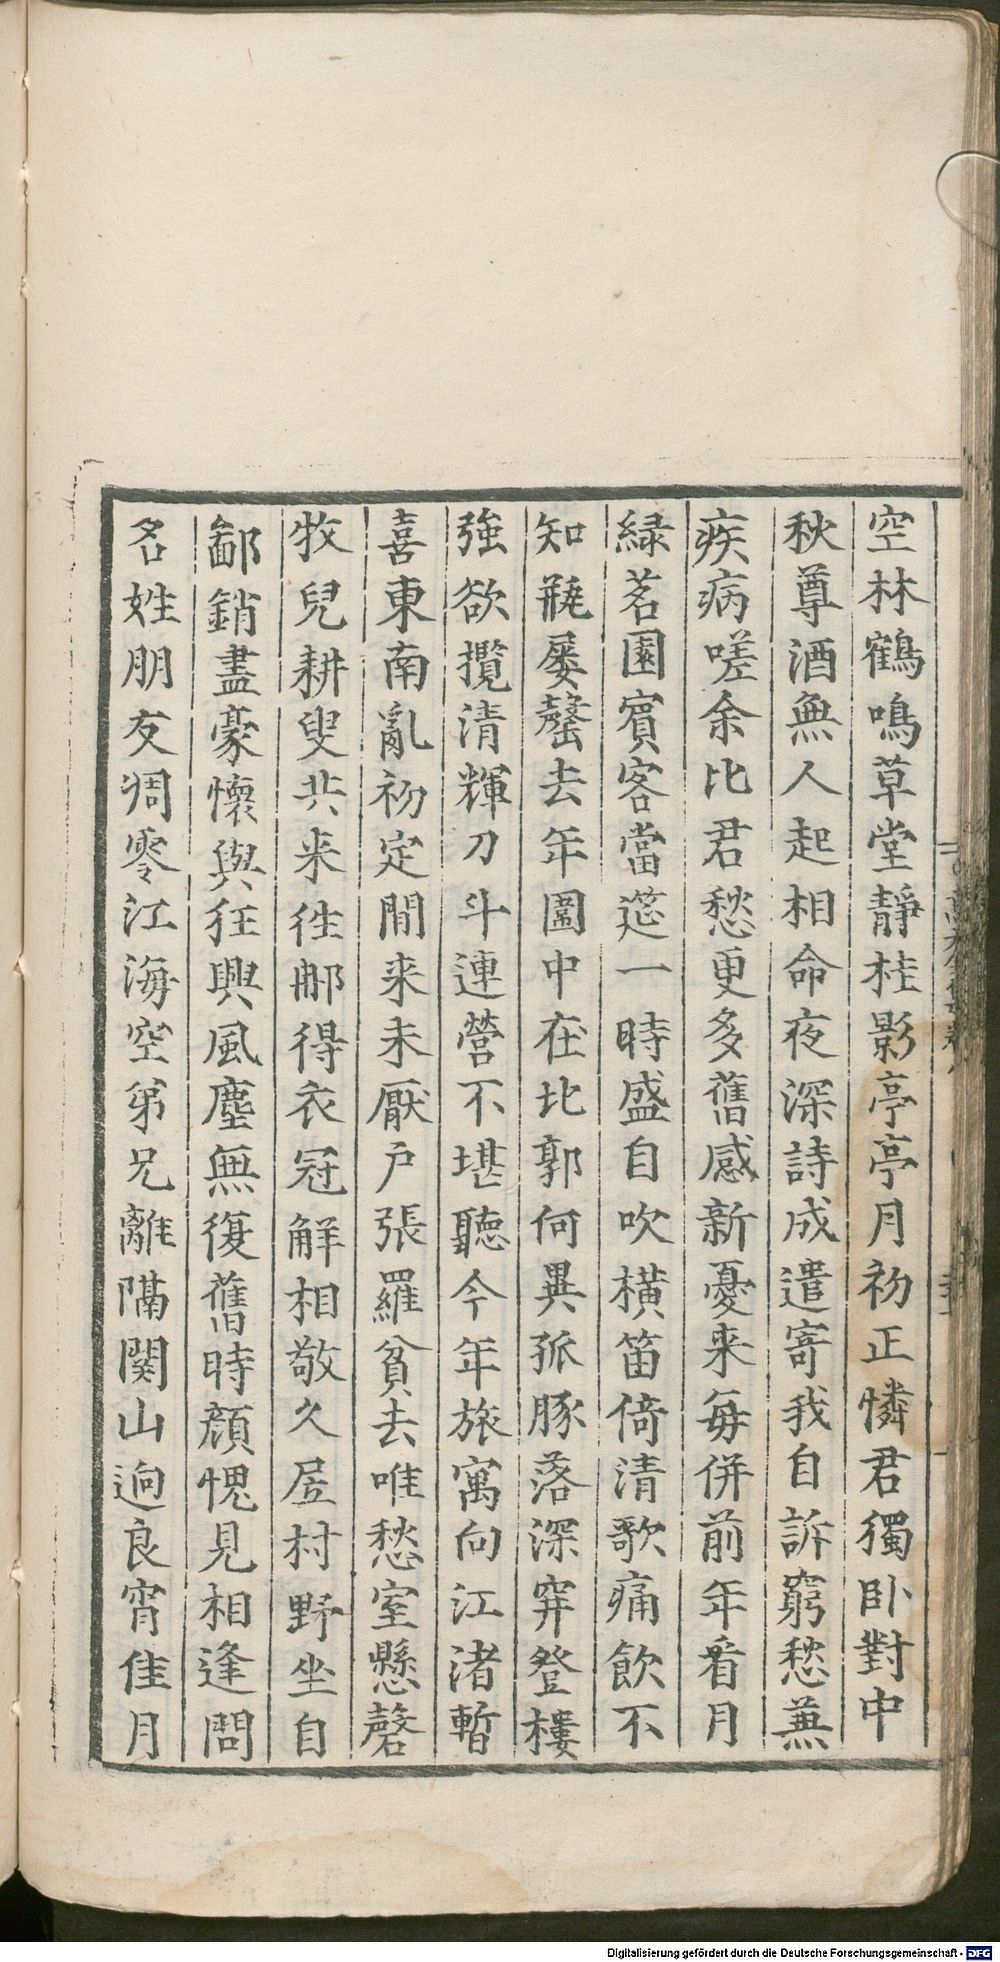 空林鶴鳴草堂靜桂影亭亭月初正憐君獨卧對中
秋尊酒無人起相命夜深詩成遣寄我自訴窮愁兼
疾病嗟余比君愁更多舊感新憂来每併前年看月
緑茗園賓客當筵一時盛自吹橫笛倚清歌痛飲不
知甁屡罄去年圍中在北郭何異孤豚落深穽登樓
強欲攬清輝刀斗連營不堪聽今年旅寓向江渚暫
喜東南亂初定閒来未厭户張羅貧去唯愁室懸磬
牧兒耕叟共来徃郍得衣冠解相敬久居村野坐自
鄙銷盡豪懷與狂興風塵無復舊時顔愧見相逢問
名姓朋友凋零江海空弟兄離隔関山逈良宵佳月
Digitalisierung gefördert durch die Deutsche Forschungsgemeinschaft - DFG